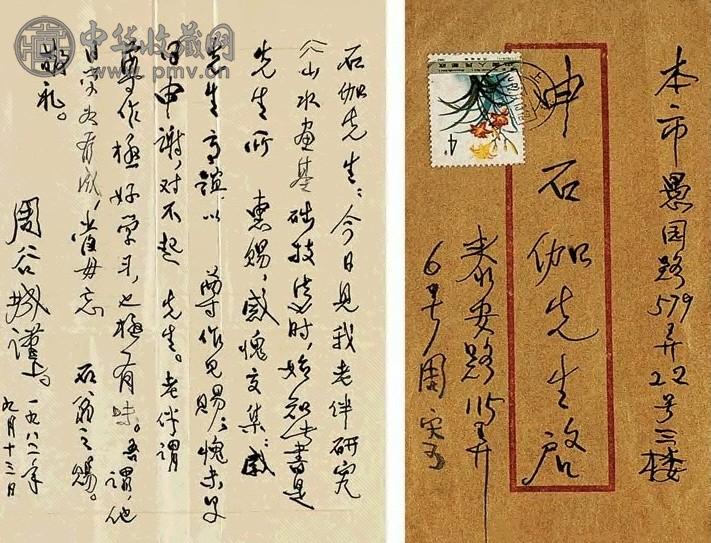 中华收藏网
www.pmv.cn
石伽先生：今日见我老伴研究
《山水画基础技法》时，始知此书是
先生所 惠赐，感愧交集；感
先生高谊以 尊作见赐；愧未早
日申谢，对不起 先生。老伴谓
尊作极好学习，也极有味。吾谓，他
日学如有成，当毋忘 石翁之赐。
敬礼。
周谷城谨上。
一九八二年
九月十三日
本市愚园路579弄22号三楼
申石伽先生启
泰安路115弄
6号周